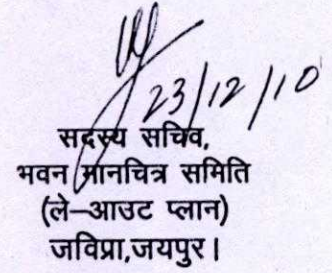 23/12/10
सदस्य सचिव,
भवन मानचित्र समिति
(ले–आउट प्लान)
जविप्रा,जयपुर।